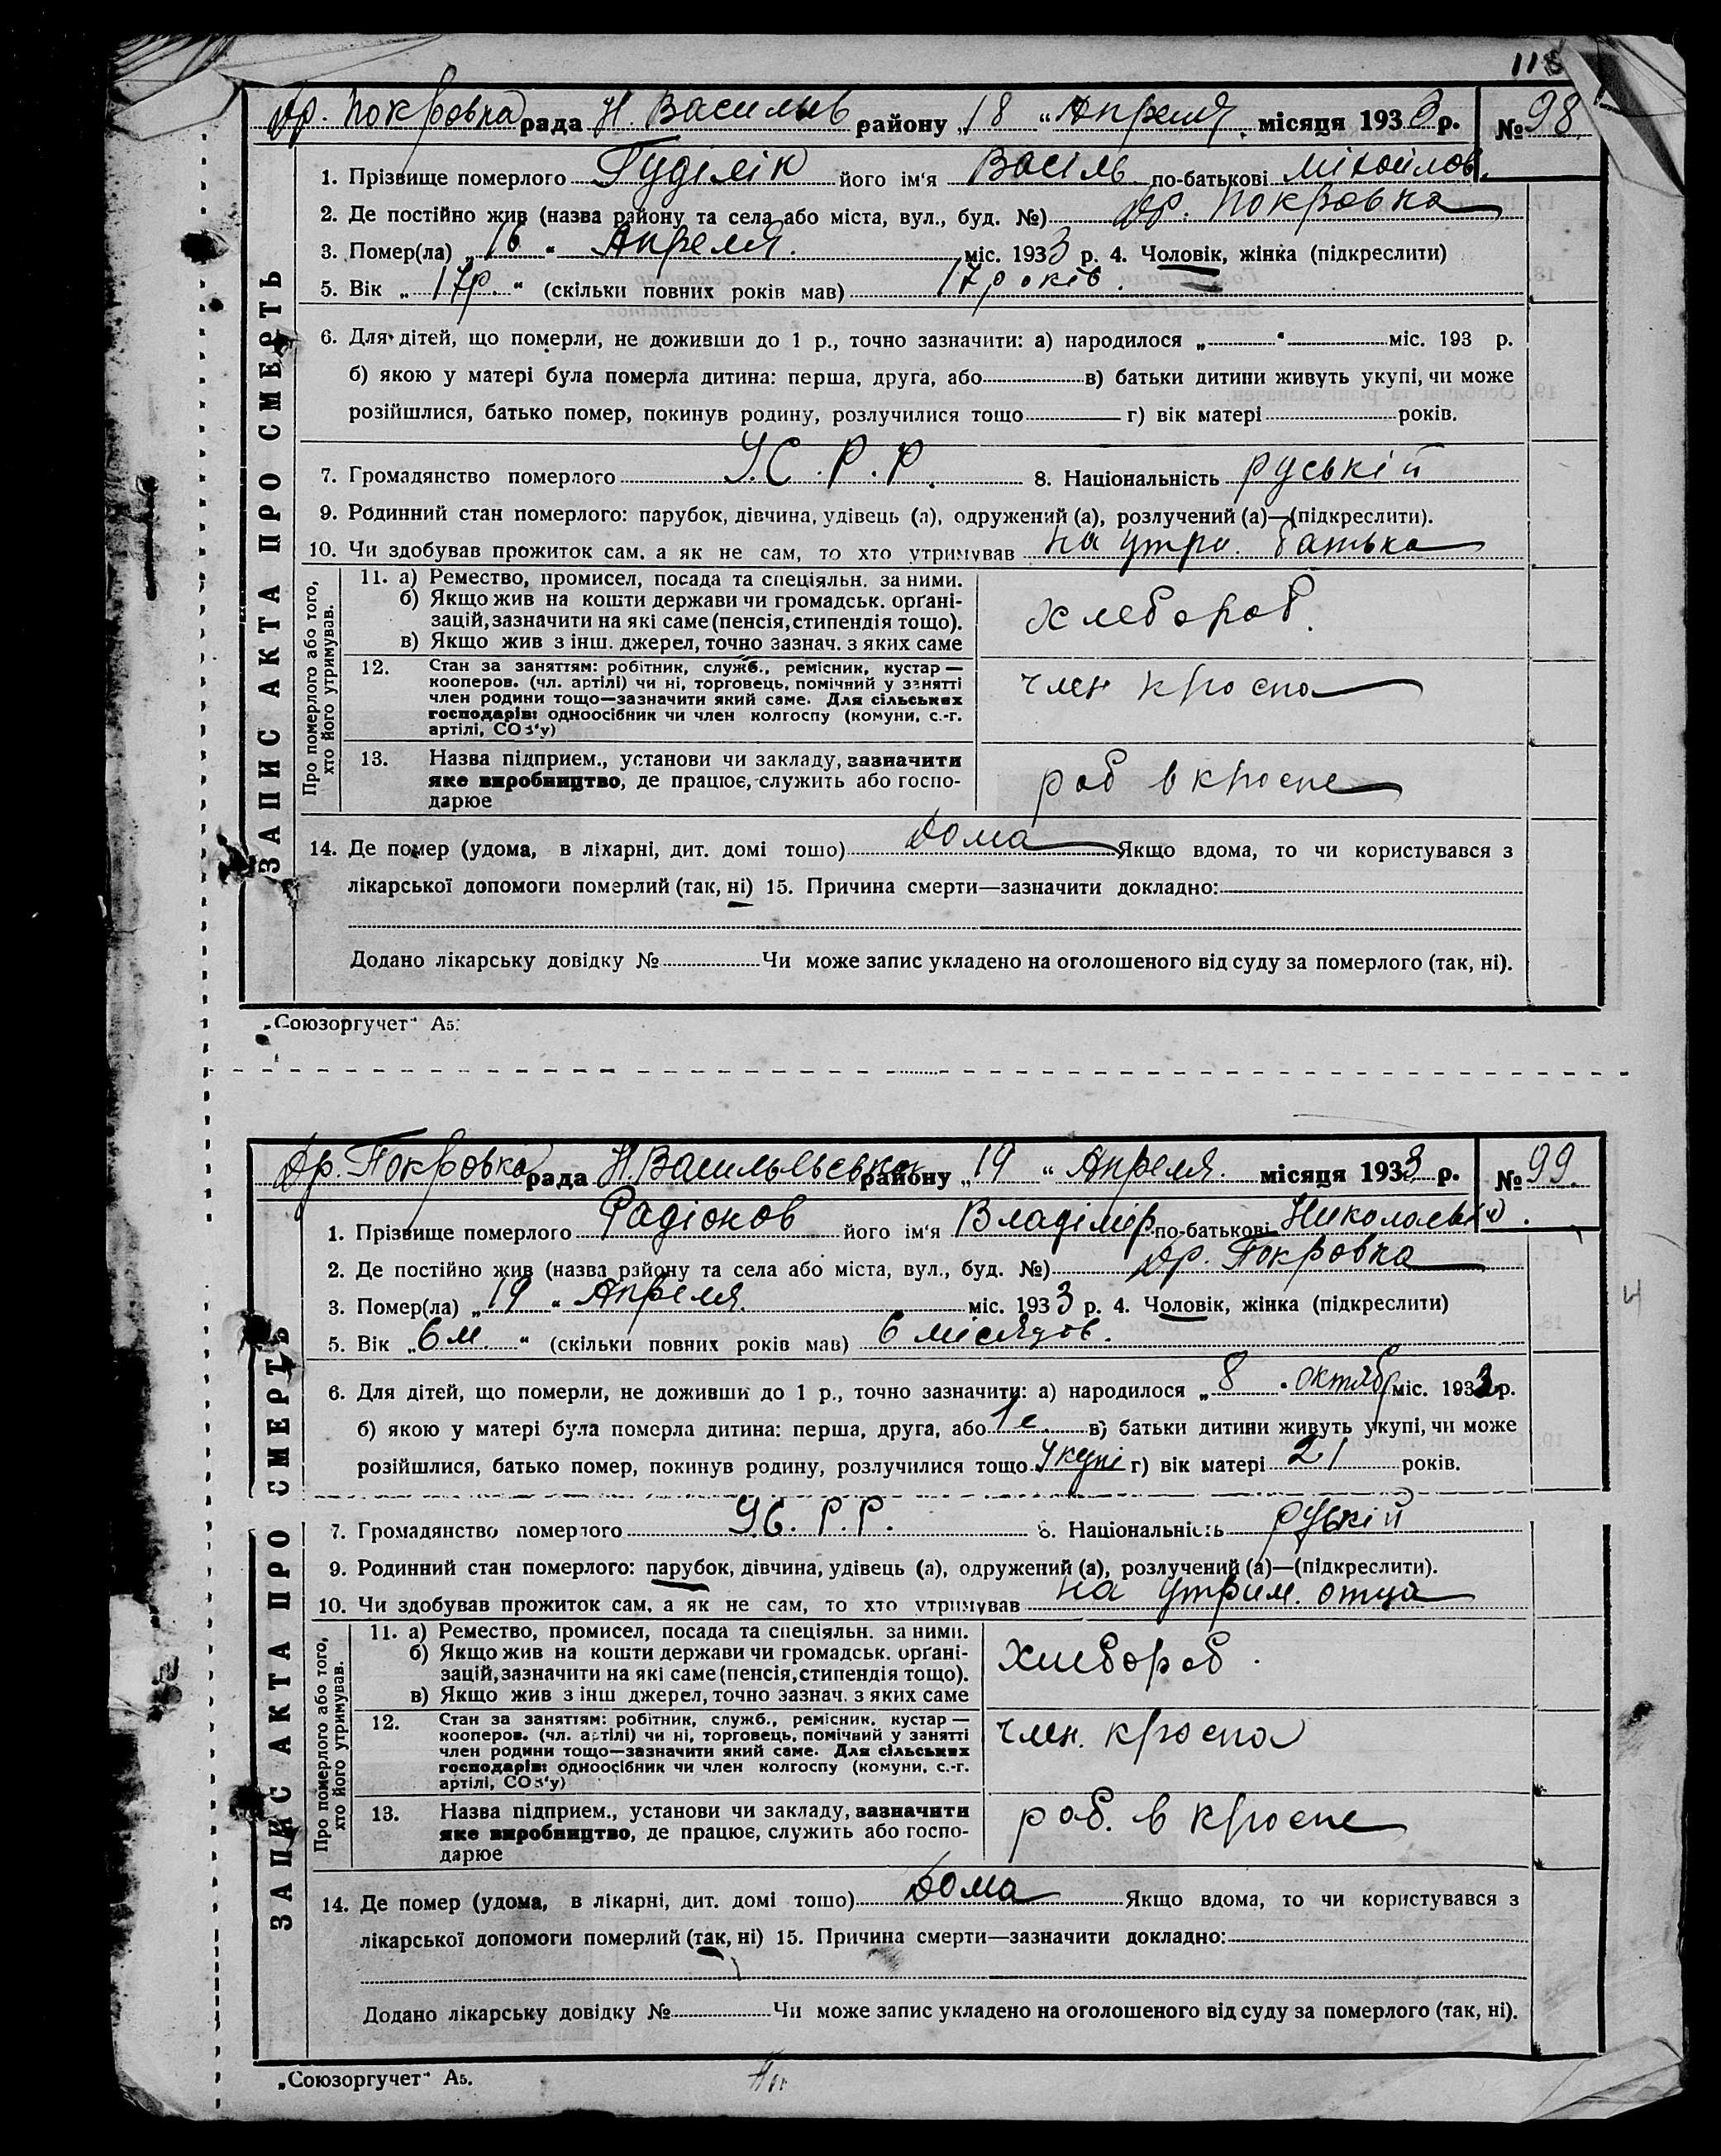 118
Др. Покровка рада Н. Васильев району „18 “ Апреля місяця 1933 р. № 98.
ЗАПИС АКТА ПРО СМЕРТЬ
1. Прізвище померлого Гуділік його ім'я Васіль по-батькові Міхойлов.
2. Де постійно жив (назва району та села або міста, вул., буд. №) Др. Покровка
3. Помер(ла) „ 16 “ Апреля. міс. 1933 р. 4. Чоловік, жінка (підкреслити)
5. Вік „ 17р. “ (скільки повних років мав) 17 років.
6. Для дітей, що померли, не доживши до 1 р., точно зазначити: а) народилося „ “ міс. 193 р.
б) якою у матері була померла дитина: перша, друга, або в) батьки дитини живуть укупі, чи може
розійшлися, батько помер, покинув родину, розлучилися тощо г) вік матері років.
7. Громадянство померлого У.С.Р.Р. 8. Національність руській
9. Родинний стан померлого: парубок, дівчина, удівець (а), одружений (а), розлучений (а)—(підкреслити).
10. Чи здобував прожиток сам, а як не сам, то хто утримував на утри. батька
Про померлого або того, хто його утримував.
11. а) Ремество, промисел, посада та спеціяльн. за ними.
б) Якщо жив на кошти держави чи громадськ. орґані-
зацій, зазначити на які саме (пенсія, стипендія тощо).
в) Якщо жив з інш. джерел, точно зазнач. з яких саме
хлебороб.
12. Стан за заняттям: робітник, служб., ремісник, кустар —
кооперов. (чл. артілі) чи ні, торговець, помічний у занятті
член родини тощо—зазначити який саме. Для сільських
господарів: одноосібник чи член колгоспу (комуни, с.-г.
артілі, СОЗ'у)
член
13. Назва підприєм., установи чи закладу, зазначити
яке виробництво, де працює, служить або госпо-
дарює
роб в
14. Де помер (удома, в лікарні, дит. домі тощо) дома Якщо вдома, то чи користувався з
лікарської допомоги померлий (так, ні) 15. Причина смерти—зазначити докладно:
Додано лікарську довідку № Чи може запис укладено на оголошеного від суду за померлого (так, ні).
„Союзоргучет“ А5.
Др. Покровка рада Н. Васильевка району „19 “ Апреля. місяця 1933 р. № 99.
ЗАПИС АКТА ПРО СМЕРТЬ
1. Прізвище померлого Радіонов його ім'я Владімір по-батькові
2. Де постійно жив (назва району та села або міста, вул., буд. №) Др. Покровка
3. Помер(ла) „ 19 “ Апреля. міс. 1933 р. 4. Чоловік, жінка (підкреслити)
5. Вік „ 6 м. “ (скільки повних років мав) 6 місяцов.
6. Для дітей, що померли, не доживши до 1 р., точно зазначити: а) народилося „ 8 “ октябр міс. 1932 р.
б) якою у матері була померла дитина: перша, друга, або 1е в) батьки дитини живуть укупі, чи може
розійшлися, батько помер, покинув родину, розлучилися тощо Укупі г) вік матері 21 років.
7. Громадянство померлого УС.Р.Р. 8. Національність руській
9. Родинний стан померлого: парубок, дівчина, удівець (а), одружений (а), розлучений (а)—(підкреслити).
10. Чи здобував прожиток сам, а як не сам, то хто утримував на утрим. отца
Про померлого або того, хто його утримував.
11. а) Ремество, промисел, посада та спеціяльн. за ними.
б) Якщо жив на кошти держави чи громадськ. орґані-
зацій, зазначити на які саме (пенсія, стипендія тощо).
в) Якщо жив з інш джерел, точно зазнач. з яких саме
Хлебороб.
12. Стан за заняттям: робітник, служб., ремісник, кустар —
кооперов. (чл. артілі) чи ні, торговець, помічний у занятті
член родини тощо—зазначити який саме. Для сільських
господарів: одноосібник чи член колгоспу (комуни, с.-г.
артілі, СОЗ'у)
член.
13. Назва підприєм., установи чи закладу, зазначити
яке виробництво, де працює, служить або госпо-
дарює
роб. в
14. Де помер (удома, в лікарні, дит. домі тощо) дома Якщо вдома, то чи користувався з
лікарської допомоги померлий (так, ні) 15. Причина смерти—зазначити докладно:
Додано лікарську довідку № Чи може запис укладено на оголошеного від суду за померлого (так, ні).
„Союзоргучет“ А5.